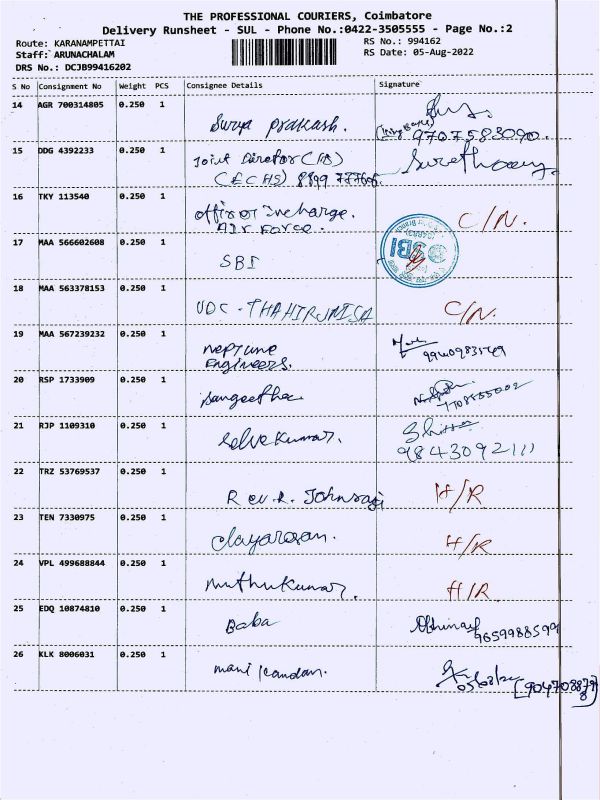 THE PROFESSIONAL COURIERS, Coimbatore
Delivery Runsheet - SUL - Phone No.:0422-3505555 - Page No.:2
Route: KARANAMPETTAI
RS No.: 994162
Staff: ARUNACHALAM
RS Date: 05-Aug-2022
DRS No.: DCJB99416202
S No Consignment No Weight PCS Consignee Details Signature
14 AGR 700314805 0.250 1
Surya prakash.
9707583090.
15 DDG 4392233 0.250 1
Joint Director (HS)
(ECHS) 8899
16 TKY 113540 0.250 1
officer Incharge. C/N.
AIR Force.
17 MAA 566602608 0.250 1
SBI SBI
18 MAA 563378153 0.250 1
UDC - THAHIRUNISA C/N.
19 MAA 567239232 0.250 1
Neptune
Engineers.
20 RSP 1733909 0.250 1
Sangeetha
21 RJP 1109310 0.250 1
Selvakumar.
9843092111
22 TRZ 53769537 0.250 1
Rev. R. Johnsraj H/R
23 TEN 7330975 0.250 1
H/R
24 VPL 499688844 0.250 1
Muthukumar. H/R
25 EDQ 10874810 0.250 1
Baba
9659988599
26 KLK 8006031 0.250 1
Manikandan.